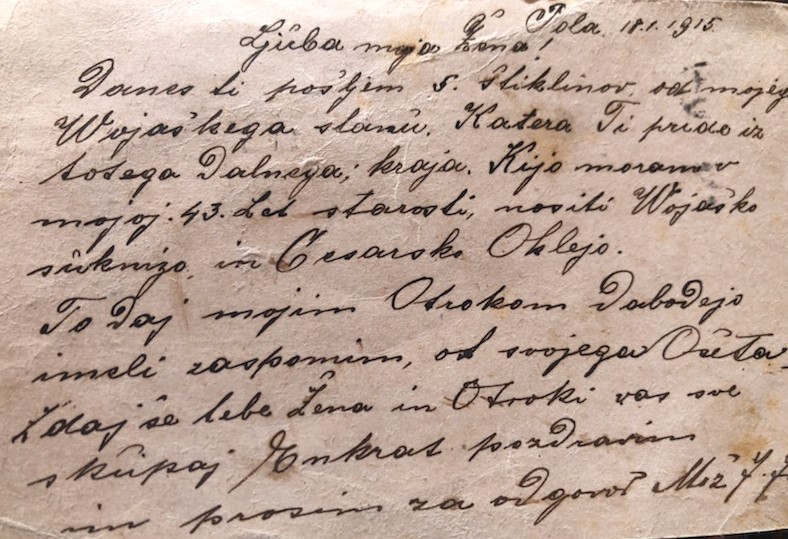 Pola 18.1.1915
Ljŭba moja Žena!
Danes ti pošljem 5. štiklinov, od mojega
Wojaškega stanŭ. Katera Ti pride iz
totega Dalnega; kraja. Kijo moram v
mojoj. 43. Let starosti, nositi Wojaško
sŭknizo, in Cesarsko Oblejo.
To Daj mojim Otrokom Dabodejo
imeli zaspomin, od svojega Očeta.
Zdaj še tebe Žena in Otroki vas sve
skŭpaj Enkrat pozdravim
in prosim za odgovor Mož